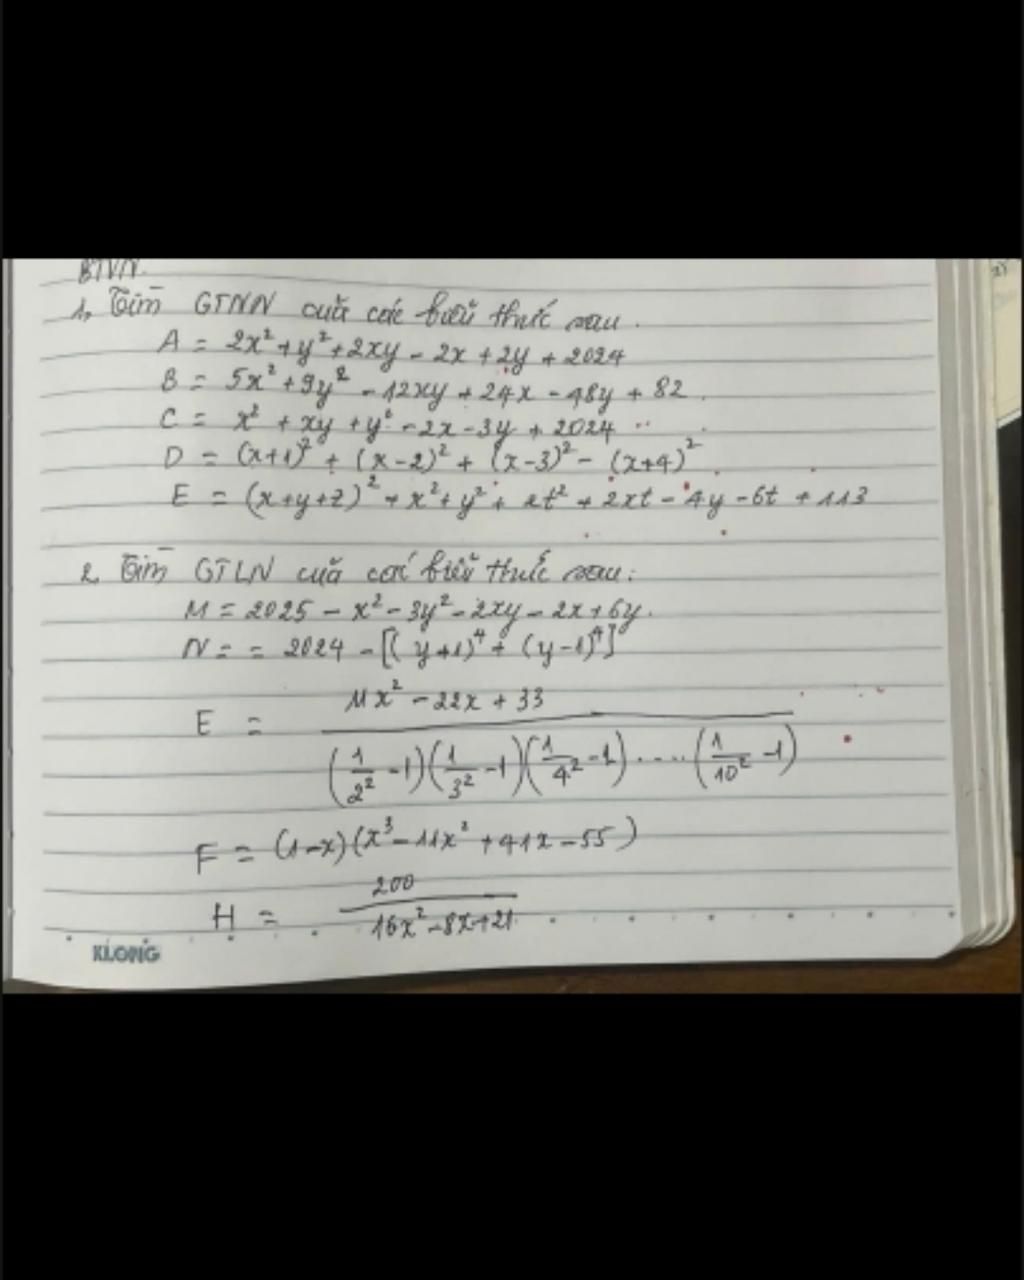 BTVN.
1, Tìm GTNN cuả các biểu thức sau.
A = 2x² + y² + 2xy - 2x + 2y + 2024
B = 5x² + 9y² - 12xy + 24x - 48y + 82.
C = x² + xy + y² - 2x - 3y + 2024
D = (x+1)² + (x-2)² + (x-3)² - (x+4)²
E = (x+y+z)² + x² + y² + 2t² + 2xt - 4y - 6t + 113
2, Tìm GTLN cuả các biểu thức sau:
M = 2025 - x² - 3y² - 2xy - 2x + 6y.
N = = 2024 - [(y+1)⁴ + (y-1)⁴]
E = 11x² - 22x + 33 / (1/2² - 1)(1/3² - 1)(1/4² - 1).....(1/10² - 1)
F = (1-x)(x³ - 11x² + 41x - 55)
H = 200 / 16x² - 8x + 21
KLONG